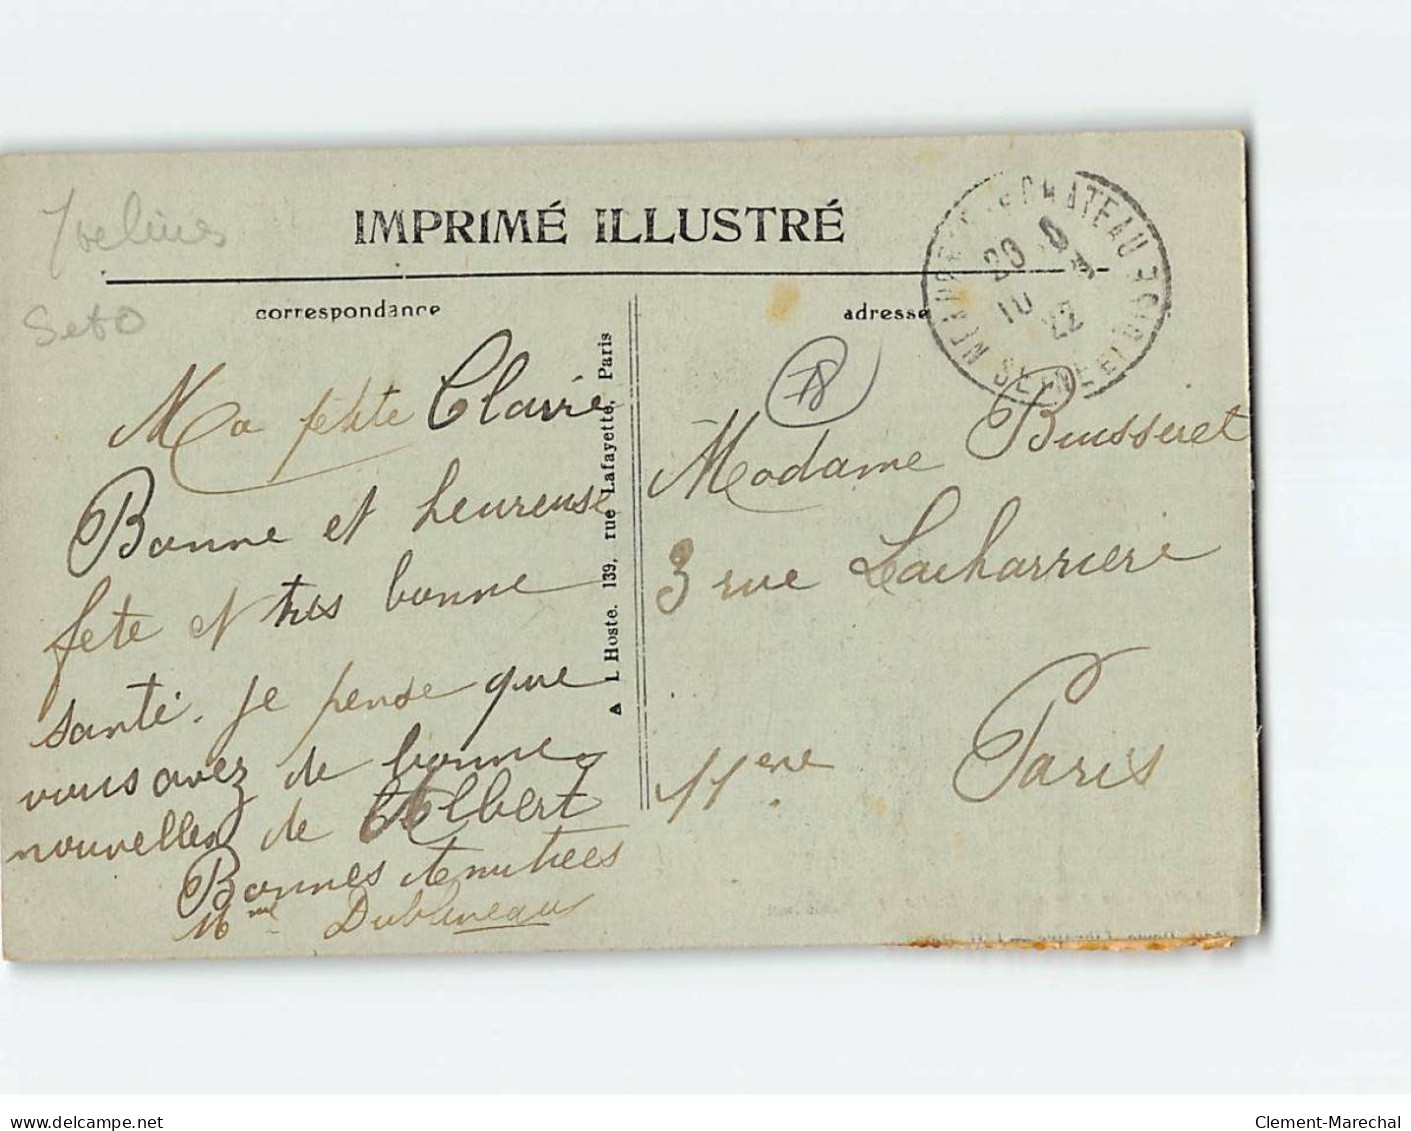 Yvelines
Set O
IMPRIMÉ ILLUSTRÉ
correspondance
adresse
NEAUPHLE-LE-CHATEAU SEINE ET OISE
20
10 22
78
Ma petite Claire
Bonne et heureuse
fete et tres bonne
santé. Je pense que
vous avez de bonne
nouvelles de Albert
Bonnes Amitiées
Mme
L Hoste. 139, rue Lafayette, Paris
Madame Buisseret
3 rue Lacharriere
11ene Paris
Clement-Marechal
www.delcampe.net